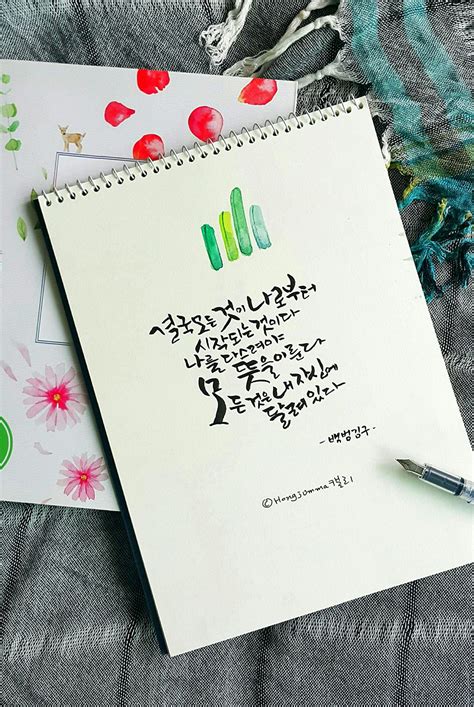 결국 모든 것이 나로부터
시작되는 것이다
나를 다스려야
뜻을 이룬다
모든 것은 내 자신에
달려있다
- 백범김구 -
©Hongsomma캘리